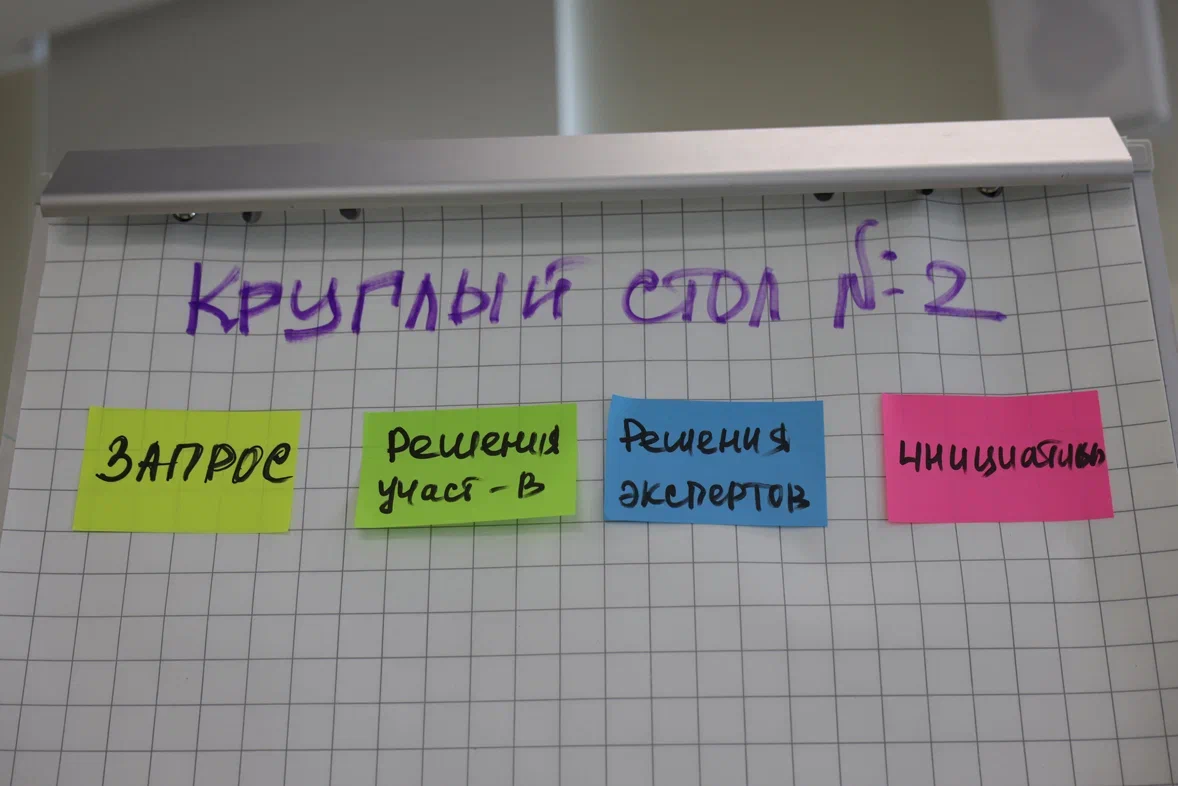 КРУГЛЫЙ СТОЛ №2
ЗАПРОС
Решения
участ-в
Решения
экспертов
инициативы